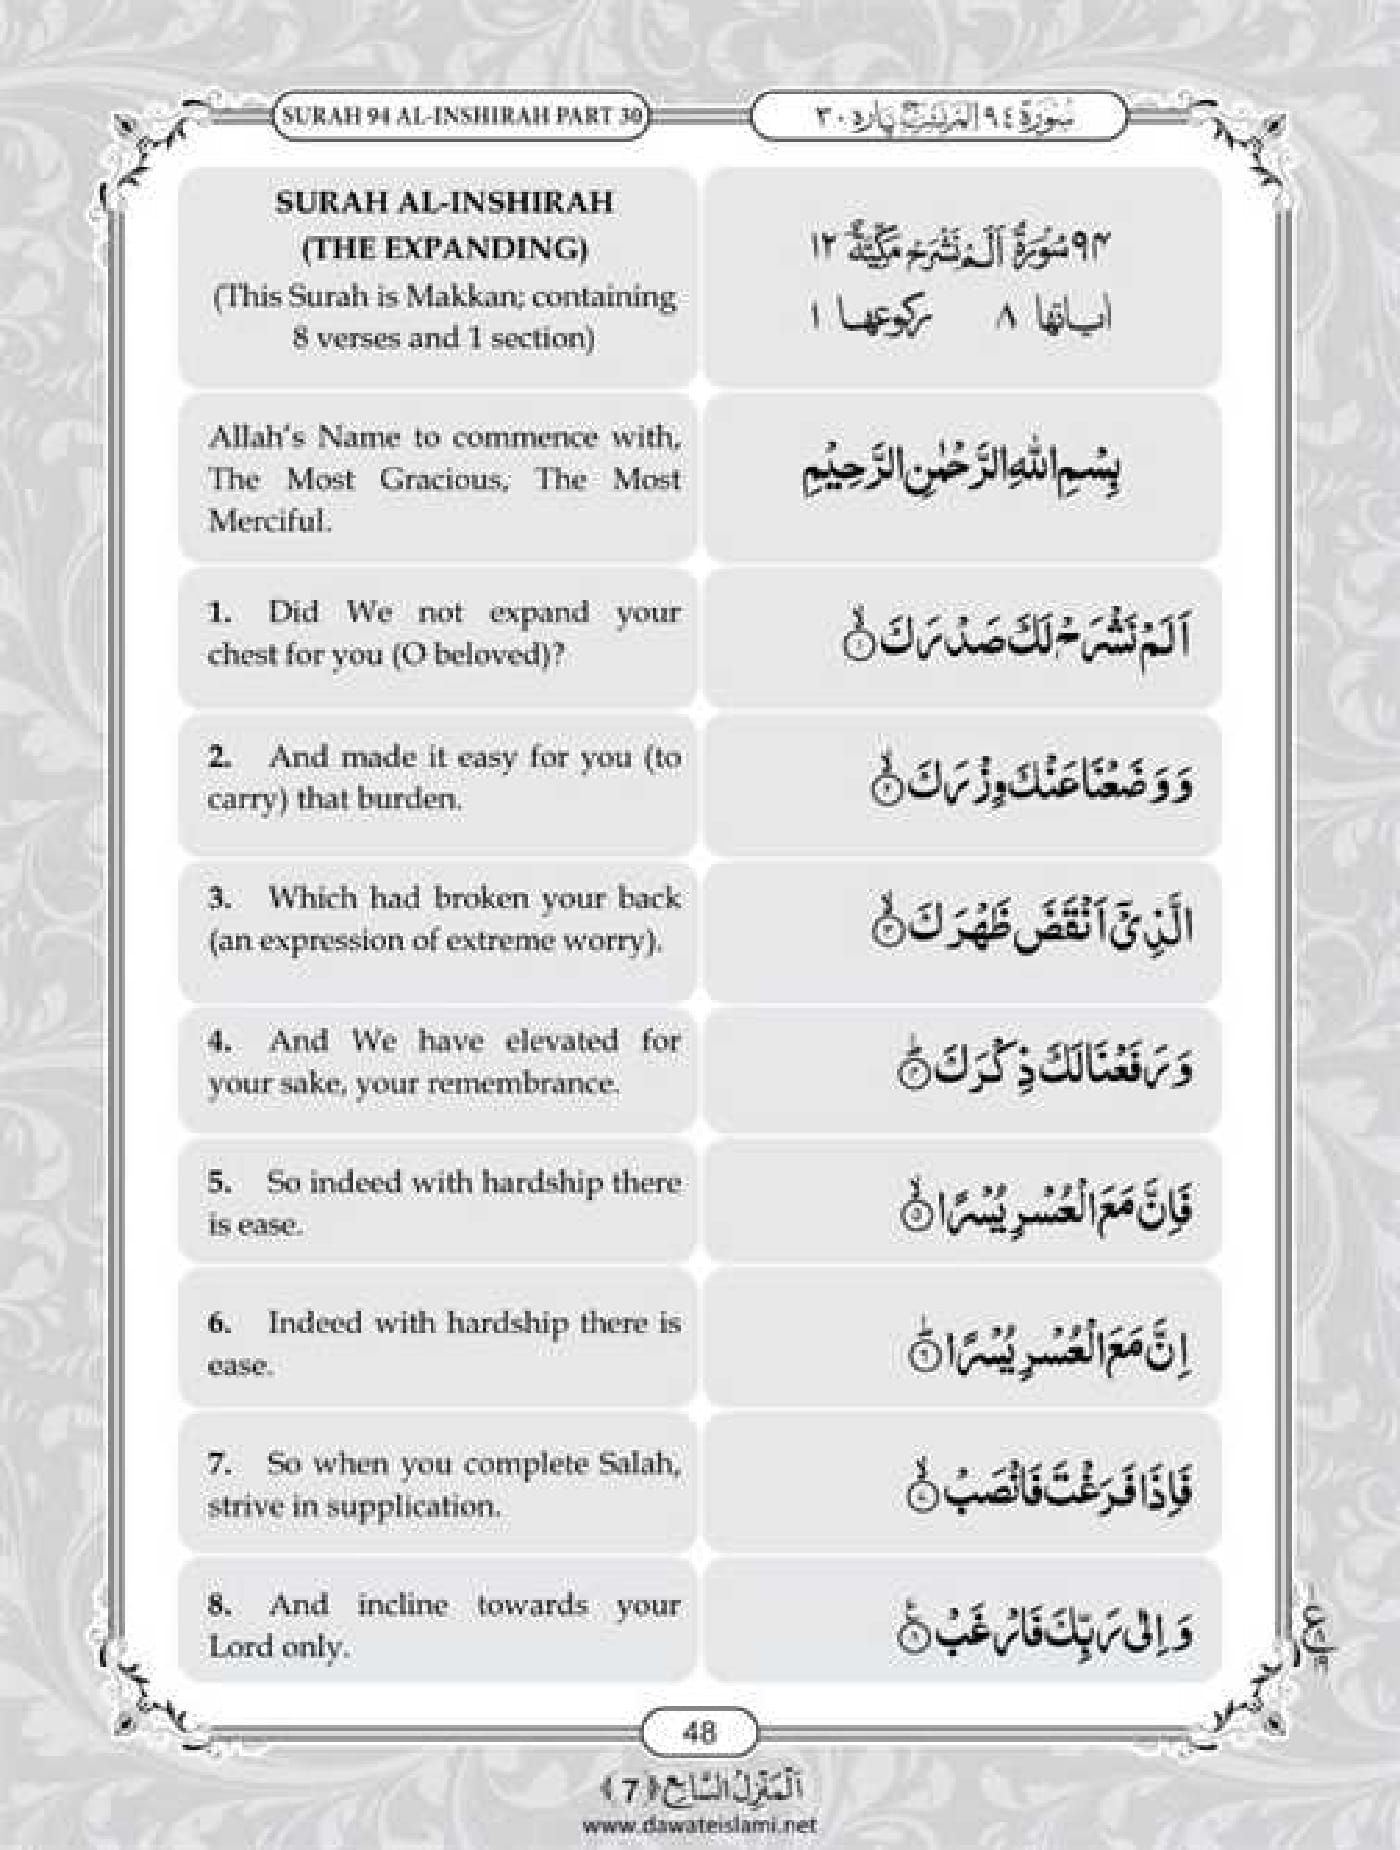 SURAH 94 AL-INSHIRAH PART 30
سُوْرَة ٩٤ اَلَمْ نَشْرَحْ پارہ ٣٠
SURAH AL-INSHIRAH
(THE EXPANDING)
(This Surah is Makkan; containing
8 verses and 1 section)
٩٤ سُوْرَةُ اَلَمْ نَشْرَحْ مَكِّيَّةٌ ١٢
اٰياتها ٨ ركوعها ١
Allah's Name to commence with,
The Most Gracious, The Most
Merciful.
بِسْمِ اللّٰهِ الرَّحْمٰنِ الرَّحِيْمِ
1. Did We not expand your
chest for you (O beloved)?
اَلَمْ نَشْرَحْ لَكَ صَدْرَكَ ۙ﴿١﴾
2. And made it easy for you (to
carry) that burden.
وَ وَضَعْنَا عَنْكَ وِزْرَكَ ۙ﴿٢﴾
3. Which had broken your back
(an expression of extreme worry).
الَّذِیْۤ اَنْقَضَ ظَهْرَكَ ۙ﴿٣﴾
4. And We have elevated for
your sake, your remembrance.
وَ رَفَعْنَا لَكَ ذِكْرَكَ ؕ﴿٤﴾
5. So indeed with hardship there
is ease.
فَاِنَّ مَعَ الْعُسْرِ یُسْرًا ۙ﴿٥﴾
6. Indeed with hardship there is
ease.
اِنَّ مَعَ الْعُسْرِ یُسْرًا ؕ﴿٦﴾
7. So when you complete Salah,
strive in supplication.
فَاِذَا فَرَغْتَ فَانْصَبْ ۙ﴿٧﴾
8. And incline towards your
Lord only.
وَ اِلٰى رَبِّكَ فَارْغَبْ ۠﴿٨﴾
48
اَلْمَنْزِلُ السَّابِع ﴿7﴾
www.dawateislami.net